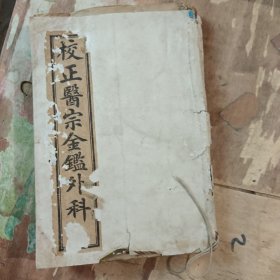 校正醫宗金鑑外科